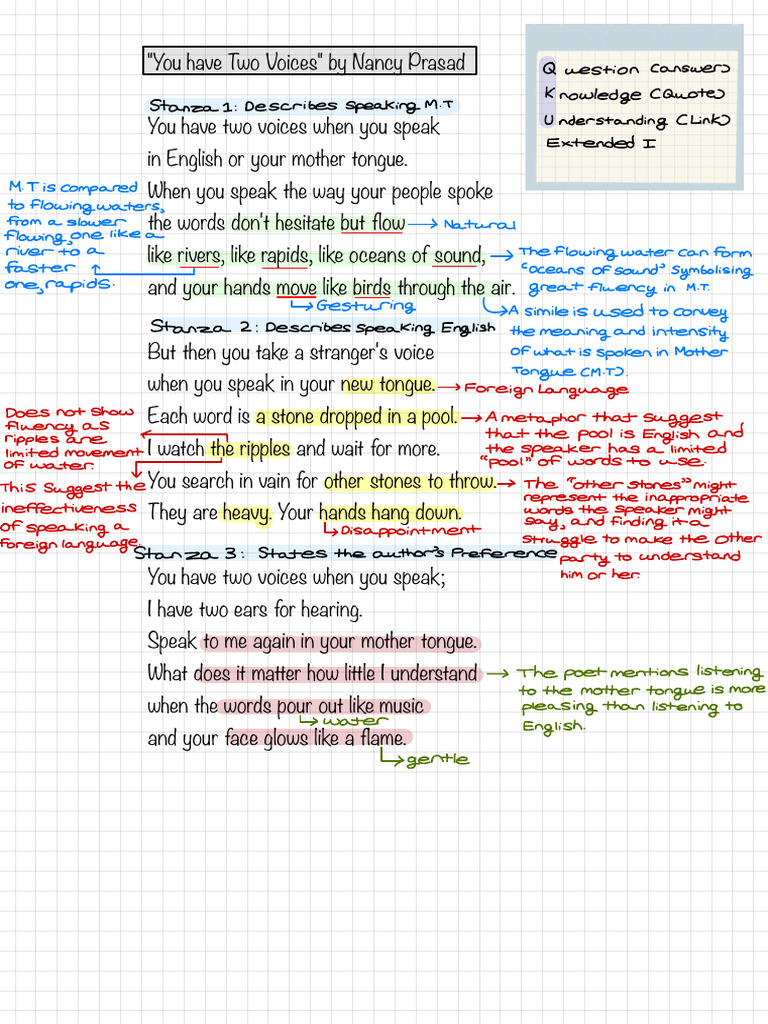 "You have Two Voices" by Nancy Prasad
Question (answer)
Knowledge (Quote)
Understanding (Link)
Extended I
Stanza 1: Describes speaking M.T
You have two voices when you speak
in English or your mother tongue.
When you speak the way your people spoke
the words don't hesitate but flow
Natural
like rivers, like rapids, like oceans of sound,
and your hands move like birds through the air.
Gesturing
M.T is compared
to flowing waters,
from a slower
flowing, one like a
river to a
faster
one, rapids.
The flowing water can form
"oceans of sound" symbolising
great fluency in M.T.
A simile is used to convey
the meaning and intensity
of what is spoken in Mother
Tongue (M.T).
Stanza 2: Describes speaking English
But then you take a stranger's voice
when you speak in your new tongue.
Foreign language
Each word is a stone dropped in a pool.
I watch the ripples and wait for more.
You search in vain for other stones to throw.
They are heavy. Your hands hang down.
Disappointment
Does not show
fluency as
ripples are
limited movement
of water.
This suggest the
ineffectiveness
of speaking a
foreign language.
A metaphor that suggest
that the pool is English and
the speaker has a limited
"pool" of words to use.
The "other stones" might
represent the inappropriate
words the speaker might
say, and finding it a
struggle to make the other
party to understand
him or her.
Stanza 3: States the author's Preference
You have two voices when you speak;
I have two ears for hearing.
Speak to me again in your mother tongue.
What does it matter how little I understand
when the words pour out like music
water
and your face glows like a flame.
gentle
The poet mentions listening
to the mother tongue is more
pleasing than listening to
English.